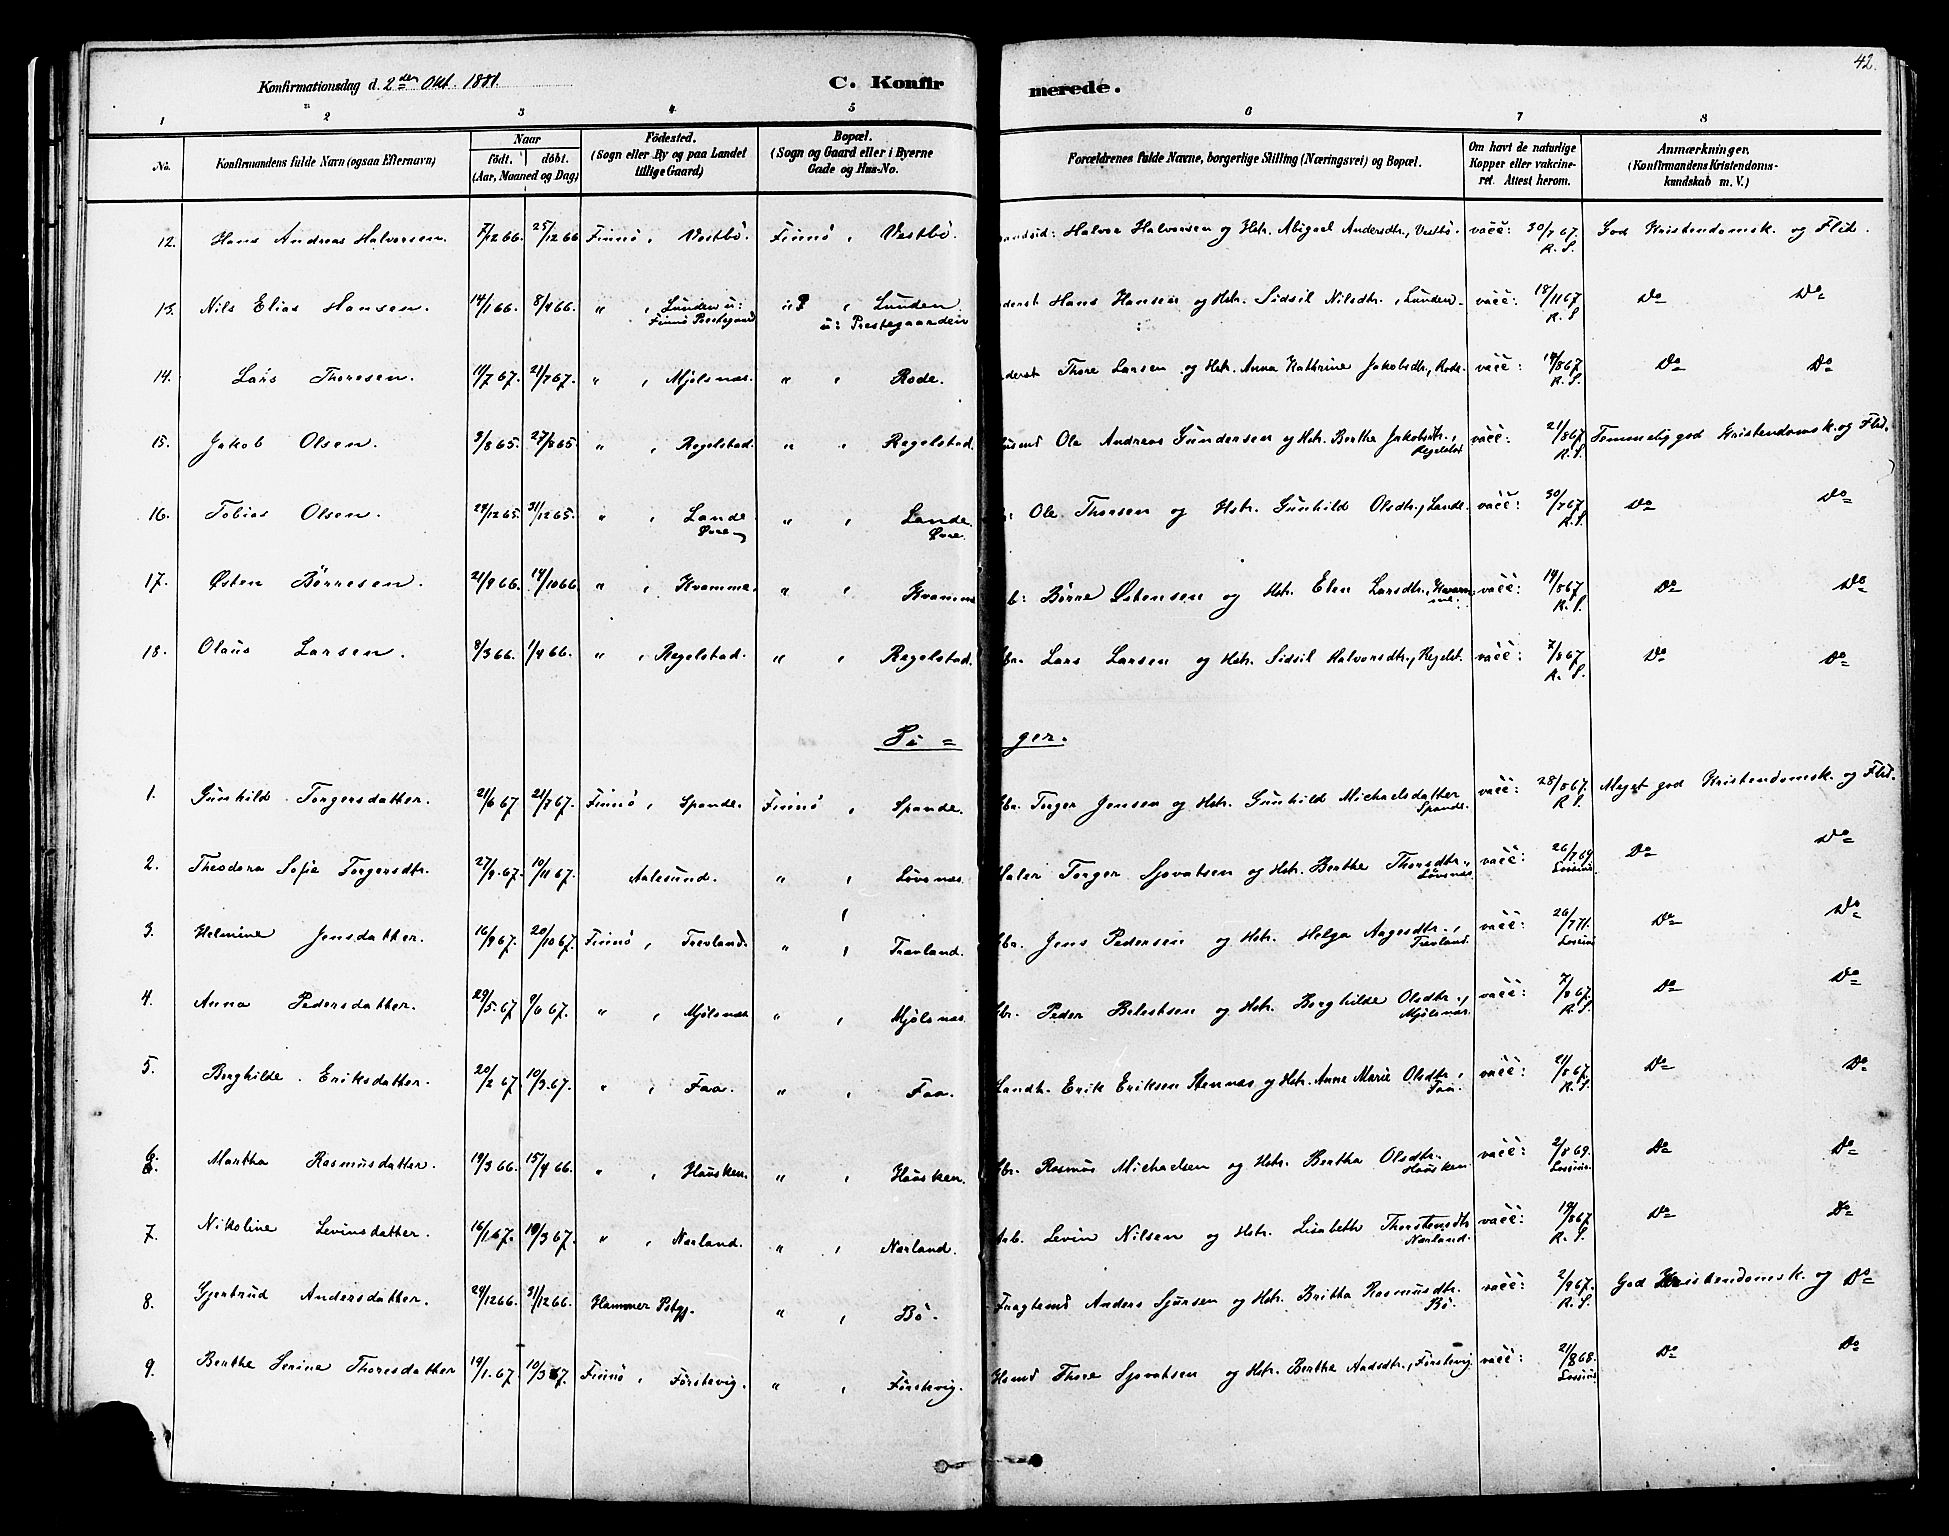 42.
Konfirmationsdag d. 2den Okt. 1881. C. Konfirmerede.
1 2 3 4 5 6 7 8
No. Konfirmandens fulde Navn (ogsaa Efternavn) Naar født. døbt. (Aar, Maaned og Dag) Fødested. (Sogn eller By og paa Landet tillige Gaard) Bopæl. (Sogn og Gaard eller i Byerne Gade og Hus-No. Forældrenes fulde Navne, borgerlige Stilling (Næringsvei) og Bopæl. Om havt de naturlige Kopper eller vakcineret. Attest herom. Anmærkninger. (Konfirmandens Kristendomskundskab m. V.)
12. Hans Andreas Halvorsen. 7/12 66. 25/12 66 Finnö, Vestbö. Finnö, Vestbö. Halvor Halvorsen og Hstr. Abigael Andersdtr., Vestbö. vacc: 30/7 67. R. S. God Kristendomsk. og Flid.
13. Nils Elias Hansen. 14/1 66. 8/4 66. " , Lunden u: Finnö Prestegaard " , Lunden u: Prestegaarden Hans Hansen og Hstr. Sidsil Nilsdtr., Lunden. vacc: 18/11 67. R. S Do Do
14. Lars Thoresen. 11/7 67. 21/7 67. " , Mjölsnæs. " , Rode. Thore Larsen og Hstr. Anna Kathrine Jakobsdtr., Rode. vacc: 14/8 67. R. S. Do Do
15. Jakob Olsen. 3/8 65. 27/8 65. " , Regelstad. " , Regelstad. Ole Andreas Gundersen og Hstr. Berthe Jakobsdtr., Regelstad vacc: 21/8 67. R. S. Temmelig god Kristendomsk. og Flid.
16. Tobias Olsen. 24/12 65. 31/12 65. " , Lande Øvre " , Lande Øvre. Ole Thorsen og Hstr. Gunhild Olsdtr., Lande. vacc: 30/7 67. R. S. Do Do
17. Østen Börresen. 21/9 66. 14/10 66. " , Kvamme. " , Kvamme Börre Østensen og Hstr. Elen Larsdtr., Kvamme. vacc: 14/8 67. R. S. Do Do
18. Olaus Larsen. 8/3 66. 1/4 66. " , Regelstad. " , Regelstad. Gbr. Lars Larsen og Hstr. Sidsil Halvorsdtr., Regelst. vacc: 7/8 67. R. S. Do Do
Pi = ger.
1. Gunhild Torgersdatter. 21/6 67. 21/7 67. Finnö, Spande. Finnö, Spande. Gbr. Torger Jensen og Hstr. Gunhild Michaelsdatter Spande. vacc: 28/8 67. R. S. Meget god Kristendomsk. og Flid.
2. Theodora Sofie Torgersdtr. 27/9. 67. 10/11 67. Aalesund. " , Lövsnæs. Maler Torger Sjovatsen og Hstr. Berthe Thorsdtr., Lövsnæs. vacc: 26/7 69. Lossius. Do Do
3. Helmine Jensdatter. 16/9 67. 20/10 67. Finnö, Trevland. " , Trevland. Gbr. Jens Pedersen og Hstr. Helga Aagesdtr., Trevland. vacc: 26/7 71. Lossius Do Do
4. Anna Pedersdatter. 29/5. 67. 9/6 67. " , Mjölsnæs. " , Mjölsnæs. Gbr. Peder Belestsen og Hstr. Berghilde Olsdtr., Mjölsnæs. vacc: 7/8 67. R. S. Do Do
5. Berghilde Eriksdatter. 20/2 67. 10/3. 67. " , Faa. " , Faa. Landh. Erik Eriksen Stennæs og Hstr. Anne Marie Olsdtr., Faa. vacc: 21/8 67. R. S. Do Do
6. Martha Rasmusdatter. 19/3 66. 15/4 66. " , Hausken. " , Hausken. Gbr. Rasmus Michaelsen og Hstr. Bertha Olsdtr. Hausken. vacc: 2/8 69. Lossius. Do Do
7. Nikoline Levinsdatter. 16/1 67. 10/3 67. " , Nærland. " , Nærland. Levin Nilsen og Hstr. Lisabeth Thorstensdtr Nærland. vacc: 14/8 67 R. S. Do Do
8. Gjertrud Andersdatter. 24/12 66. 31/12 66. Hammer Pstgj. " , Bö. Fragtemd Anders Sjursen og Hstr. Britha Rasmusdtr. Bö. vacc: 2/9 67. R. S. God Kristendomsk. og Do
9. Berthe Serine Thoresdatter 19/1. 67. 10/3 67. Finnö, Förstevig. " , Förstevig. Thore Sjovatsen og Hstr. Berthe Aadsdtr., Förstevig vacc: 21/8 68. Lossius Do Do